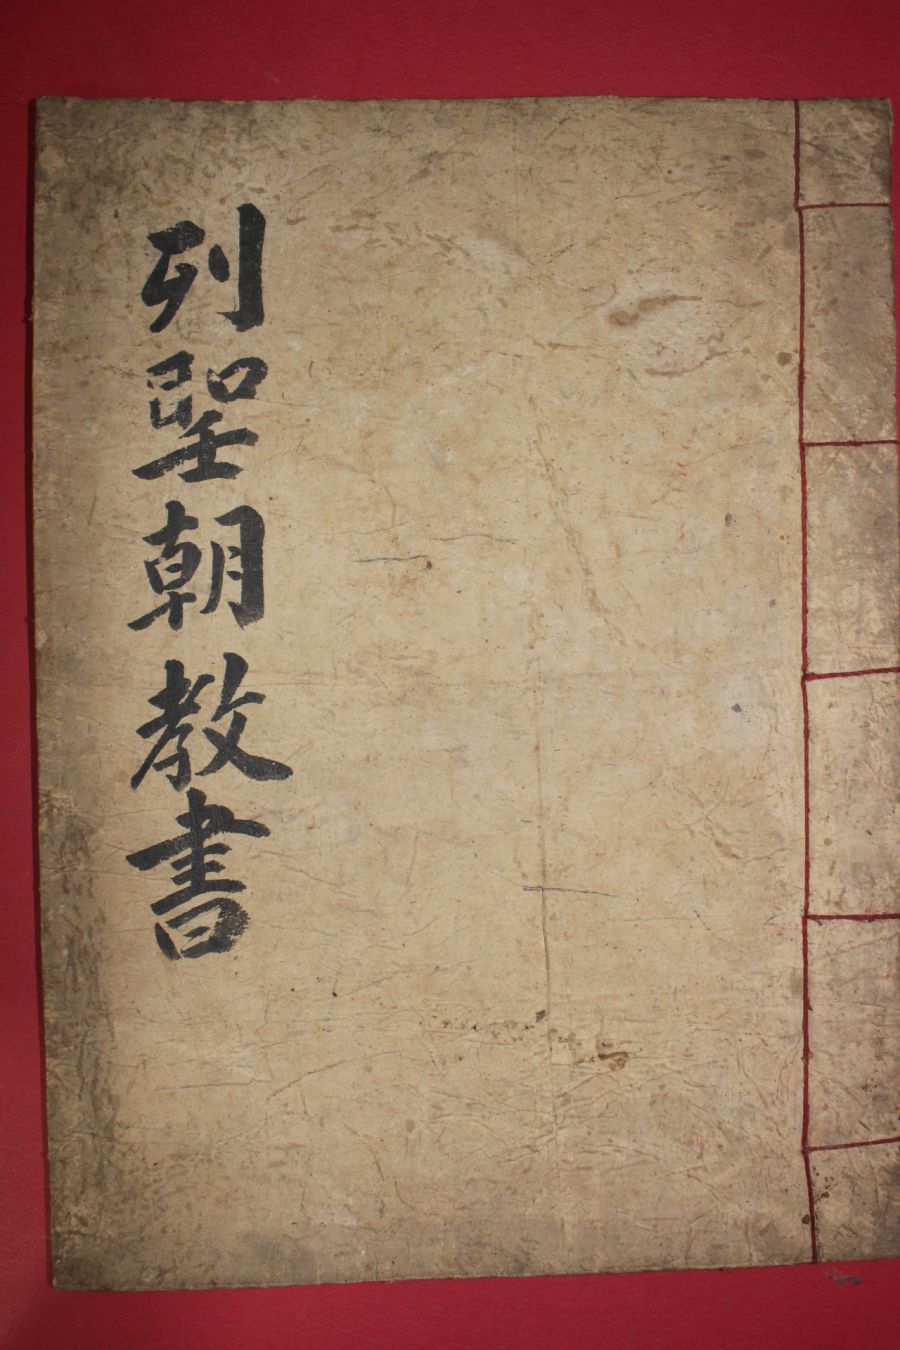 列聖朝教書